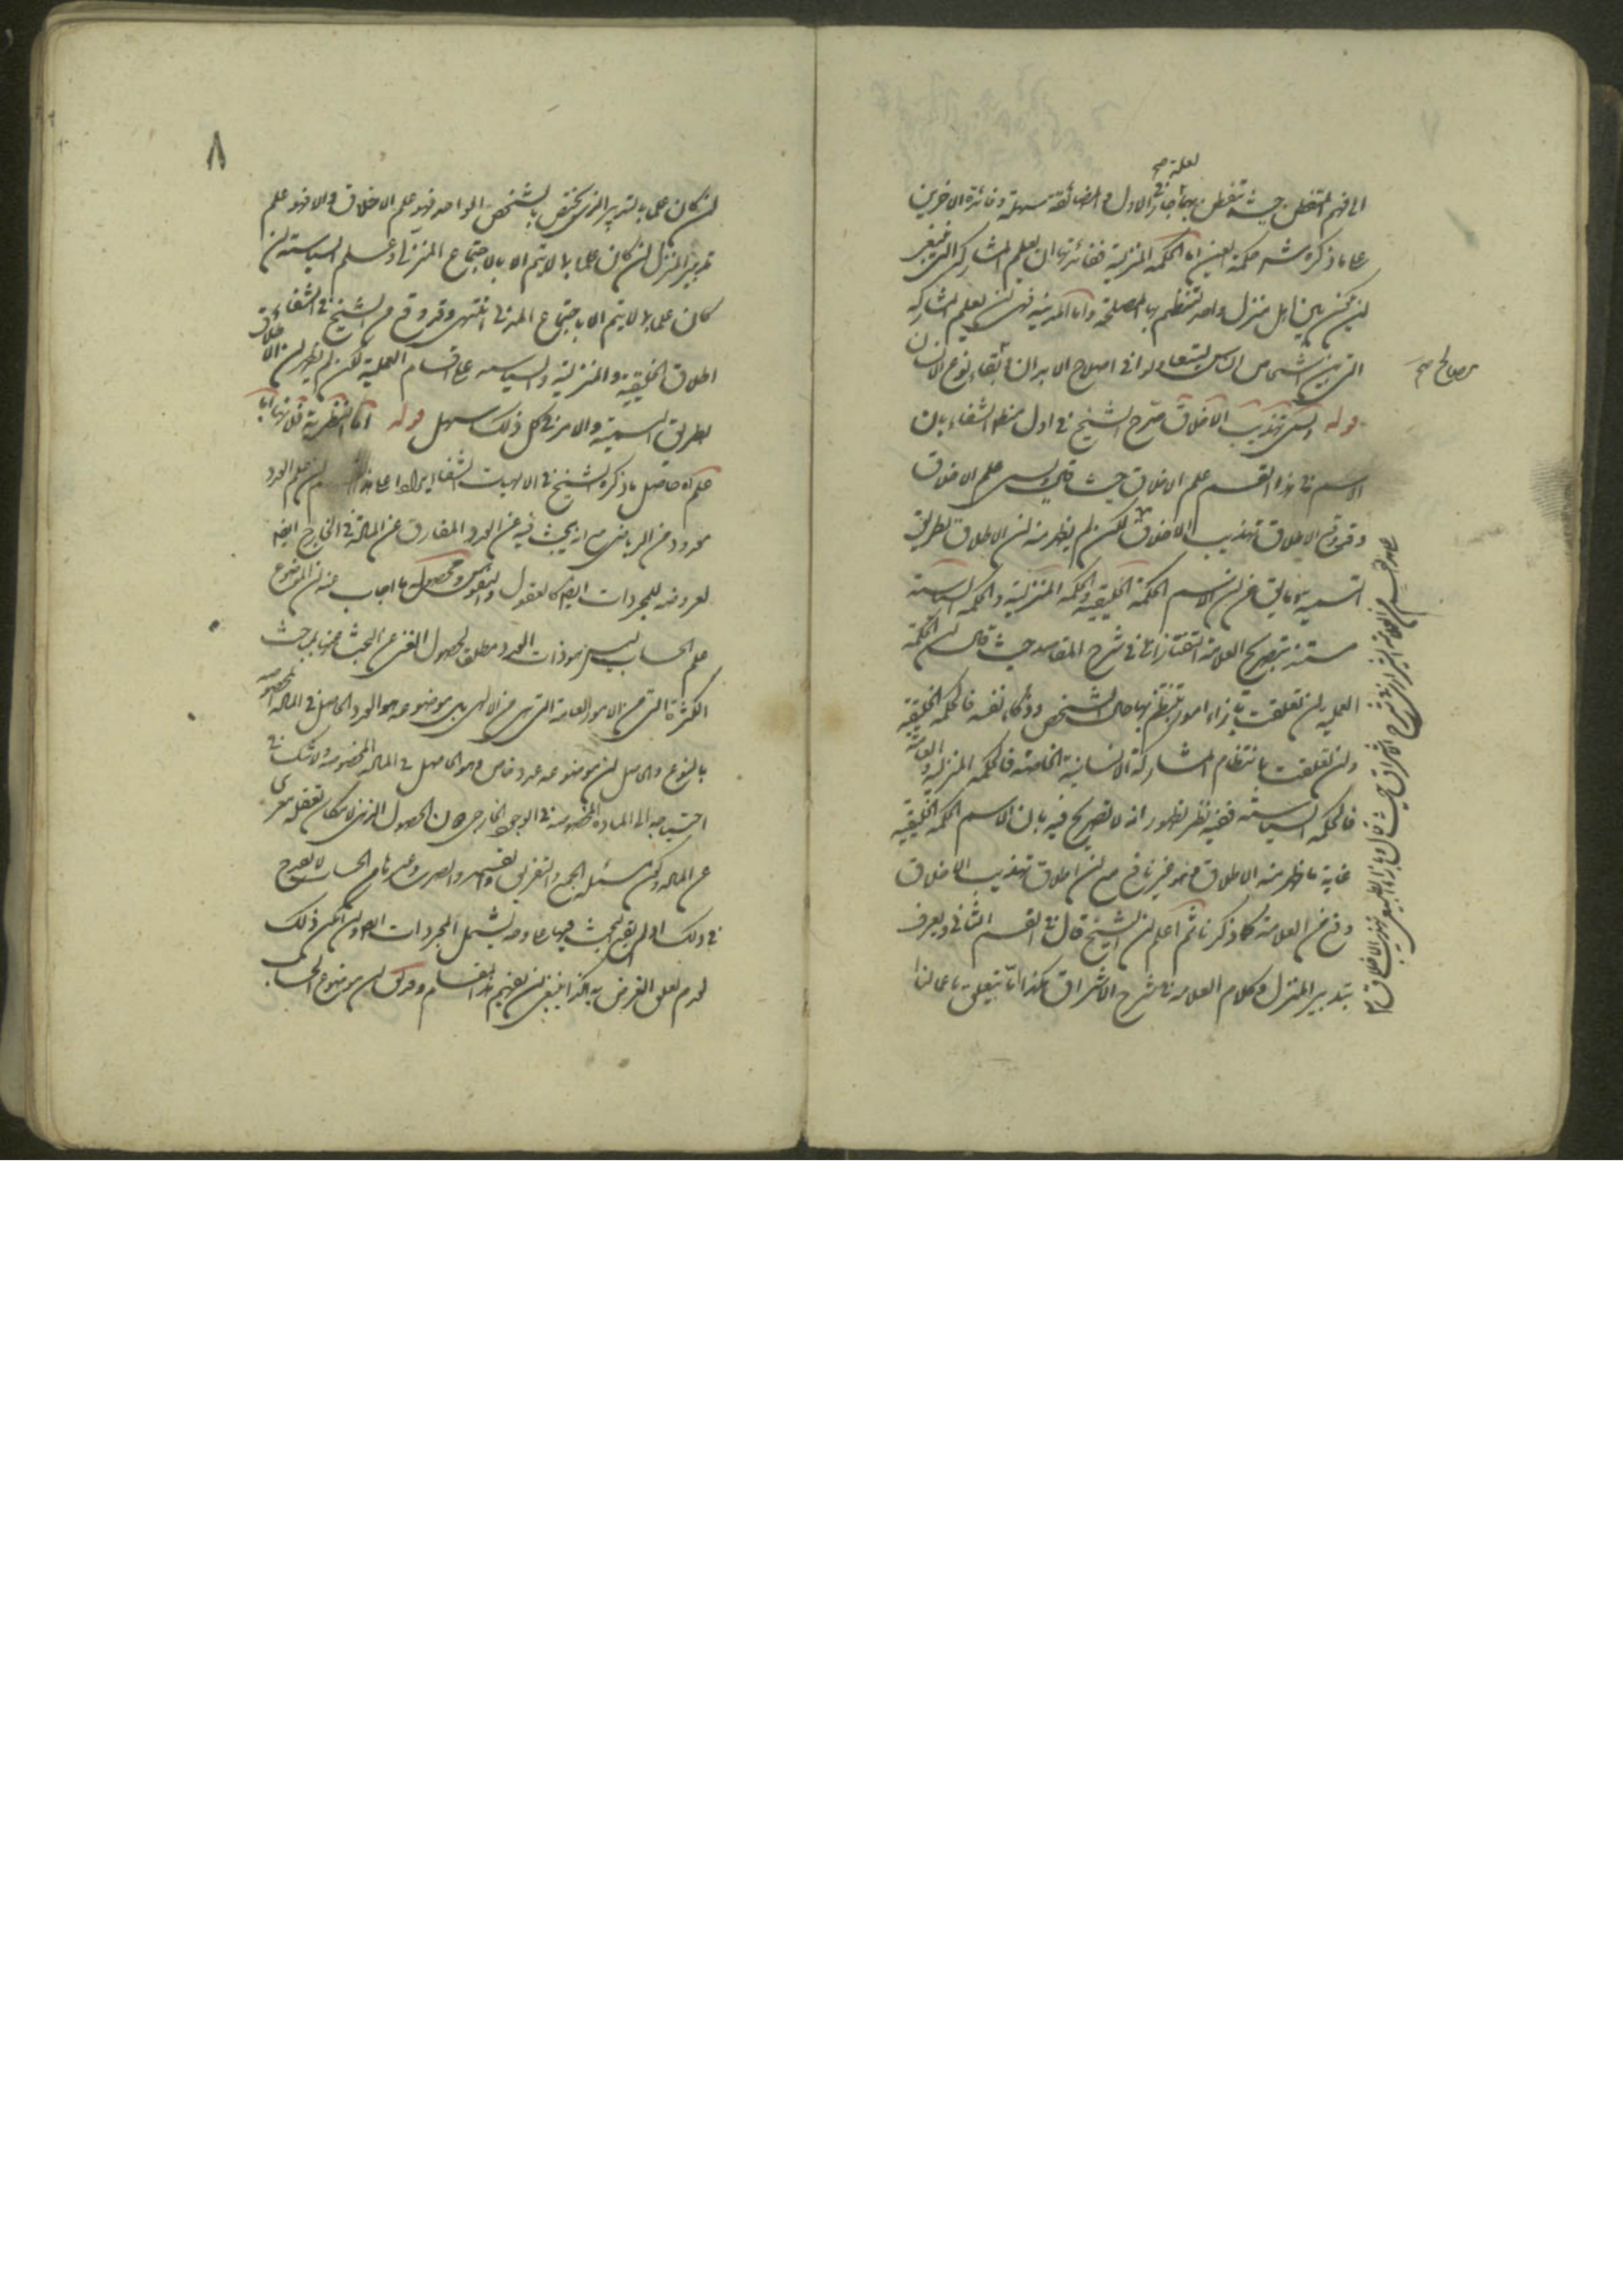 لعله صح
الى فهم المتفطن حيث تفطن بهما جائز في الاول و المضائقة سهلة وفائدة الاخرين
على ما ذكره شـ حكمة العين اما الحكمة المنزلية ففائدتها ان يعلم المشاركة التي ينبغي
ان يكون بين اهل منزل واحد لتنتظم بها المصلحة واما المدنية فهي ان يعلم المشاركة
التي بين اشخاص الناس ليتعاونوا في اصلاح الابدان و بقاء نوع الانسان
مصالح صح
قوله ويسمى تهذيب الاخلاق صرح الشيخ في اول منطق الشفاء بان
الاسم في هذا القسم علم الاخلاق حيث قال ويسمى علم الاخلاق
وقد وقع الاطلاق تهذيب الاخلاق لكن لم يظهر منه ان الاطلاق بطريق
التسمية وما يق من ان الاسم الحكمة الخليقية والحكمة المنزلية والحكمة السياسية
مستند بتصريح العلامة التفتازاني في شرح المقاصد حيث قال ان الحكمة
العملية ان تعلقت بآراء امور ينتظم بها حال الشخص وذكاء نفسه فالحكمة الخليقية
وان تعلقت بانتظام المشاركة الانسانية الخاصة فالحكمة المنزلية والعامة
فالحكمة السياسية ففيه نظر لظهور انه لا تصريح فيه بان الاسم الحكمة الخليقية
غاية ما ظهر منه الاطلاق وهو غير نافع مع ان اطلاق تهذيب الاخلاق
وقع من العلامة كما ذكرنا ثم اعلم ان الشيخ قال في القسم الثاني ويعرف
بتدبير المنزل وكلام العلامة في شرح الاشراق هكذا اما يتعلق باعمالنا
العلامة الشيرازي في شرح الاشراق حيث قال وبازاء الطبيعي تهذيب الاخلاق ١٢
٨
ان كان علما بالتدبير الذي يختص بالشخص الواحد فهو علم الاخلاق والا فهو علم
تدبير المنزل ان كان علما بما لا يتم الا بالاجتماع المنزلي وعلم السياسة ان
كان علما بما لا يتم الا باجتماع المدني انتهى وقد وقع من الشيخ في الشفاء
اطلاق الخليقية والمنزلية والسياسية على اقسام العملية لكن لم يظهر ان الاطلاق
بطريق التسمية والامر في كل ذلك سهل قوله اما النظرية فلانها اما
علم آه حاصل ما ذكره الشيخ في الالهيات الشفا ايرادا على هذا ان علم العدد
معدود من الرياضي مع انه يبحث فيه عن العدد المفارق عن المادة في الخارج ايضا
لعروضه للمجردات ايضا كالعقول والنفوس ومحصول ما اجاب عنه ان الموضوع
علم الحساب ليس هو ذات العدد مطلقا لحصول الغنى عن البحث عنها بمباحث
الكثرة التي من الامور العامة التي هي من الالهي بل موضوعه هو العدد الحاصل في المادة المخصوصة
بالنوع والحاصل ان موضوعه عدد خاص وهو الحاصل في المادة المخصوصة ولا شك في
احتياجه الى المادة المخصوصة في الوجود الخارجي فان الحصول الذي لا مكان تعقله معرى
عن المادة وكون مسئلة الجمع والتفريق والقسمة والضرب وغيرها من الحساب لا يقدح
في ذلك اذ لم يقع البحث فيها على وجه يشمل المجردات ايضا وان امكن ذلك
لعدم تعلق الغرض به هكذا ينبغي ان يفهم هذا المقام وقد ق ان موضوع الحساب